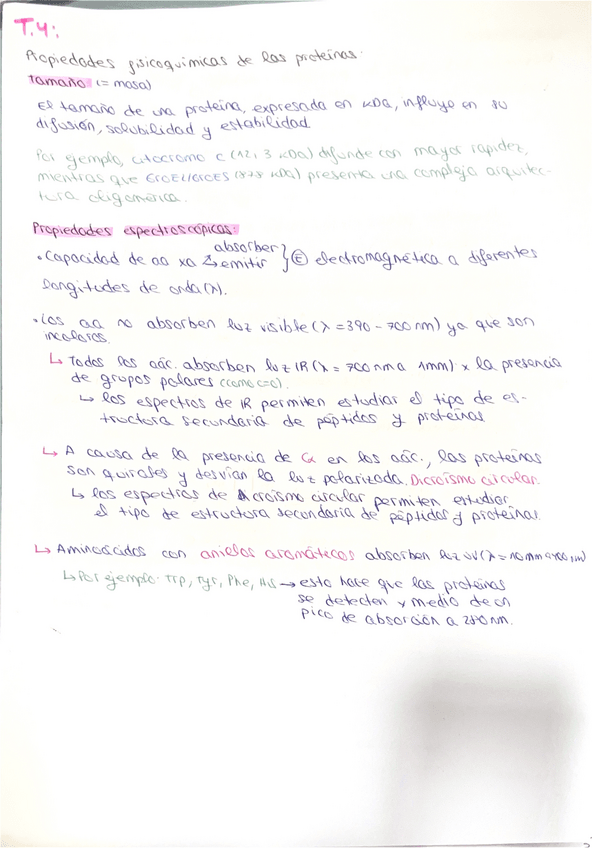 T.4:
Propiedades fisicoquímicas de las proteínas.
tamaño (= masa)
El tamaño de una proteína, expresada en kDa, influye en su
difusión, solubilidad y estabilidad.
Por ejemplo, citocromo c (12,3 kDa) difunde con mayor rapidez,
mientras que GroEL/GroES (878 kDa) presenta una compleja arquitec-
tura oligomérica.
Propiedades espectroscópicas:
• Capacidad de aa xa absorber
emitir } Ⓔ electromagnética a diferentes
longitudes de onda (λ).
• Los aa no absorben luz visible (λ = 390 - 700 nm) ya que son
incoloros.
↳ Todos los aác. absorben luz IR (λ = 700 nm a 1mm) x la presencia
de grupos polares (como C=O).
↳ los espectros de IR permiten estudiar el tipo de es-
tructura secundaria de péptidos y proteínas
↳ A causa de la presencia de Cα en los aác., las proteínas
son quirales y desvían la luz polarizada. Dicroísmo circular.
↳ los espectros de dicroísmo circular permiten estudiar
el tipo de estructura secundaria de péptidos y proteínas.
↳ Aminoácidos con anillos aromáticos absorben luz UV (λ = 10 nm a 400 nm)
↳ Por ejemplo: Trp, Tyr, Phe, His → esto hace que las proteínas
se detecten x medio de un
pico de absorción a 280 nm.